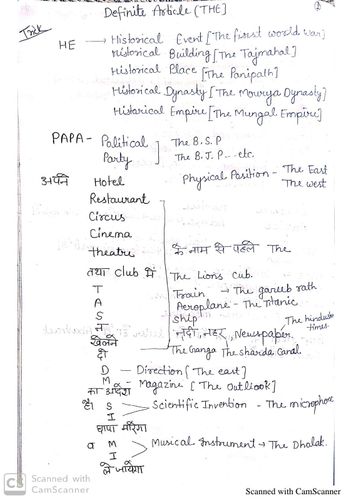 Definite Article (THE)
Trick
HE → Historical Event [The first world war]
Historical Building [The Tajmahal]
Historical Place [The Panipath]
Historical Dynasty [The Mourya Dynasty]
Historical Empire [The Mungal Empire]
PAPA - Political The B.S.P
Party The B.J.P... etc.
अपने Hotel Physical Position - The East
The west
Restaurant
Circus
Cinema
theatre के नाम से पहले The
तथा Club में The Lions Cub.
T Train → The gareeb rath
A Aeroplane - The Titanic
S Ship
न नदी, नहर, Newspaper The hindustan times.
खेलने
दो The Ganga The sharda Canal.
D - Direction [The east]
M - Magazine [The Outlook]
का अंदेशा
है। S Scientific Invention - The microphone
I
छापा मारेगा
व M Musical Instrument → The Dholak.
I
ले जायेगा
CS Scanned with CamScanner
Scanned with CamScanner